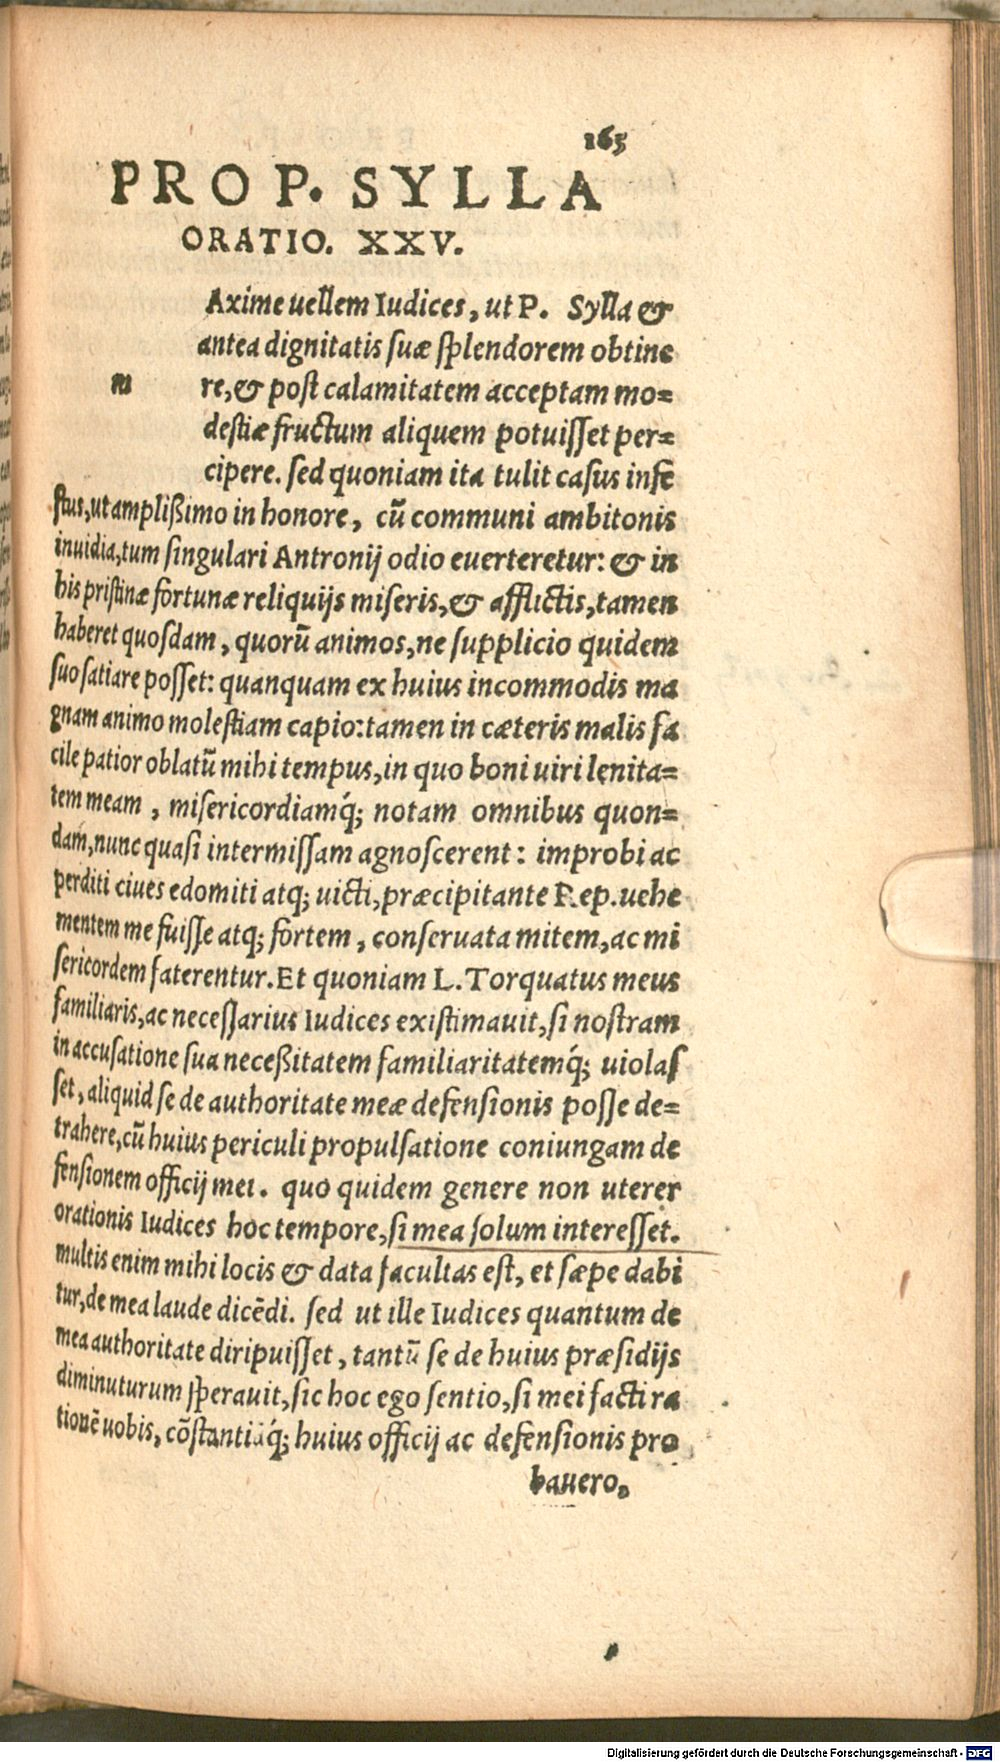 165
PRO P. SYLLA
ORATIO. XXV.
m Axime uellem Iudices, ut P. Sylla &
antea dignitatis suæ splendorem obtine
re, & post calamitatem acceptam mo=
destiæ fructum aliquem potuisset per=
cipere. sed quoniam ita tulit casus infe
stus, ut amplißimo in honore, cũ communi ambitonis
inuidia, tum singulari Antronij odio euerteretur: & in
his pristinæ fortunæ reliquijs miseris, & afflictis, tamen
haberet quosdam, quorũ animos, ne supplicio quidem
suo satiare posset: quanquam ex huius incommodis ma
gnam animo molestiam capio: tamen in cæteris malis fa
cile patior oblatũ mihi tempus, in quo boni uiri lenita=
tem meam, misericordiamq́; notam omnibus quon=
dam, nunc quasi intermissam agnoscerent: improbi ac
perditi ciues edomiti atq; uicti, præcipitante Rep. uehe
mentem me fuisse atq; fortem, conseruata mitem, ac mi
sericordem faterentur. Et quoniam L. Torquatus meus
familiaris, ac necessarius Iudices existimauit, si nostram
in accusatione sua neceßitatem familiaritatemq́; uiolas
set, aliquid se de authoritate meæ defensionis posse de=
trahere, cũ huius periculi propulsatione coniungam de
fensionem officij mei. quo quidem genere non uterer
orationis Iudices hoc tempore, si mea solum interesset.
multis enim mihi locis & data facultas est, et sæpe dabi
tur, de mea laude dicẽdi. sed ut ille Iudices quantum de
mea authoritate diripuisset, tantũ se de huius præsidijs
diminuturum sperauit, sic hoc ego sentio, si mei facti ra
tionẽ uobis, cõstantiãq́; huius officij ac defensionis pro
bauero,
Digitalisierung gefördert durch die Deutsche Forschungsgemeinschaft - DFG